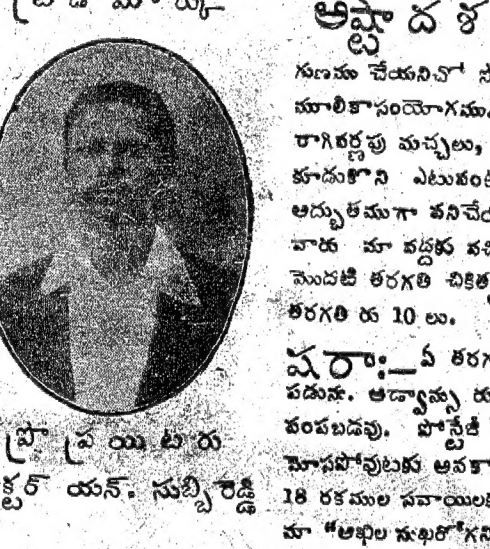 ట్రేడు మార్కు
ప్రొప్రయిటరు
క్టర్ యన్. సుబ్బిరెడ్డి
అష్టాదశ
గుణము చేయనిచో
మూలికాసంయోగము.
రాగివర్ణపు మచ్చలు,
కూడుకొని ఎటువంటి
అద్భుతముగా పనిచేయ
వారు మా వద్దకు వచ్చి
మొదటి తరగతి చికిత్స
తరగతి రు 10 లు.
షరా:— ఏ తరగ
పడును. ఆడ్వాన్సు రు
పంపబడవు. పోస్టేజి
మోసపోవుటకు అవకా
18 రకముల సవాయిలకు
మా "అఖిల సుఖరోగని